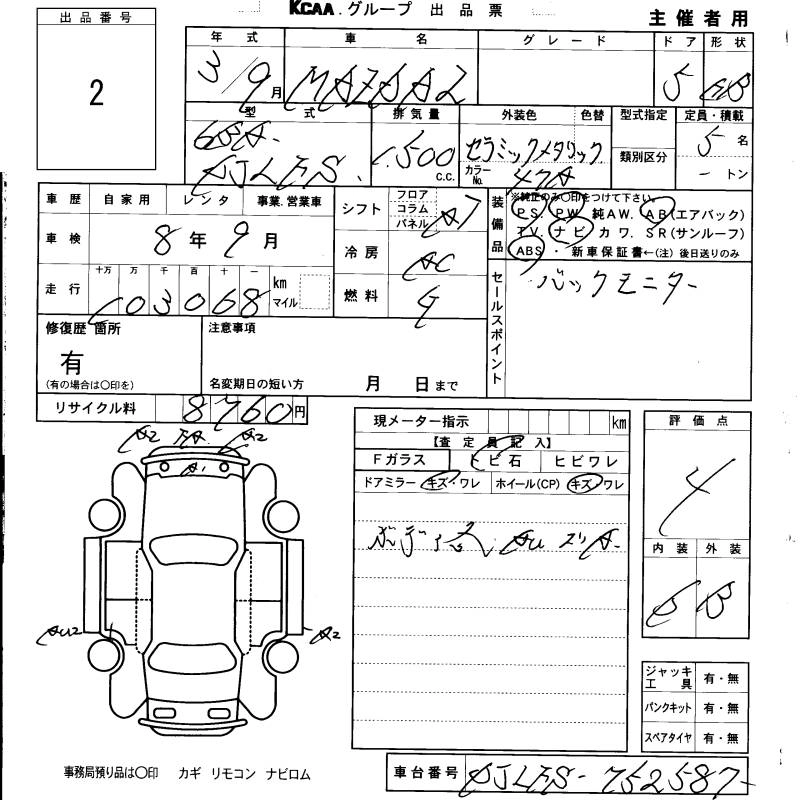 KCAA.グループ 出品票
主催者用
出品番号
2
年式 車名 グレード ドア 形状
3/9月 MAZDA2 5 HB
型式 排気量 外装色 色替 型式指定 定員・積載
6BA 1,500 c.c. セラミックメタリック 5名
DJLFS カラーNo. 47A 類別区分 -トン
車歴 自家用 レンタ 事業.営業車
シフト フロア コラム パネル AT
装備品 ※純正のみ〇印をつけて下さい。
PS. PW 純AW. AB(エアバック)
TV. ナビ カワ. SR(サンルーフ)
ABS ・ 新車保証書←(注) 後日送りのみ
車検 8年9月
冷房 AC
走行 十万 万 千 百 十 一 km マイル
103068
燃料 G
セールスポイント バックモニター
修復歴 箇所 注意事項
有
(有の場合は〇印を) 名変期日の短い方 月 日まで
リサイクル料 8760円
A2 A2
A1
AU2 A2
現メーター指示 km
【査定員記入】
Fガラス トビ石 ヒビワレ
ドアミラー キズ・ワレ ホイール(CP) キズ・ワレ
評価点
4
内装 外装
B
ジャッキ工具 有・無
パンクキット 有・無
スペアタイヤ 有・無
事務局預り品は〇印 カギ リモコン ナビロム
車台番号 DJLFS-752587-